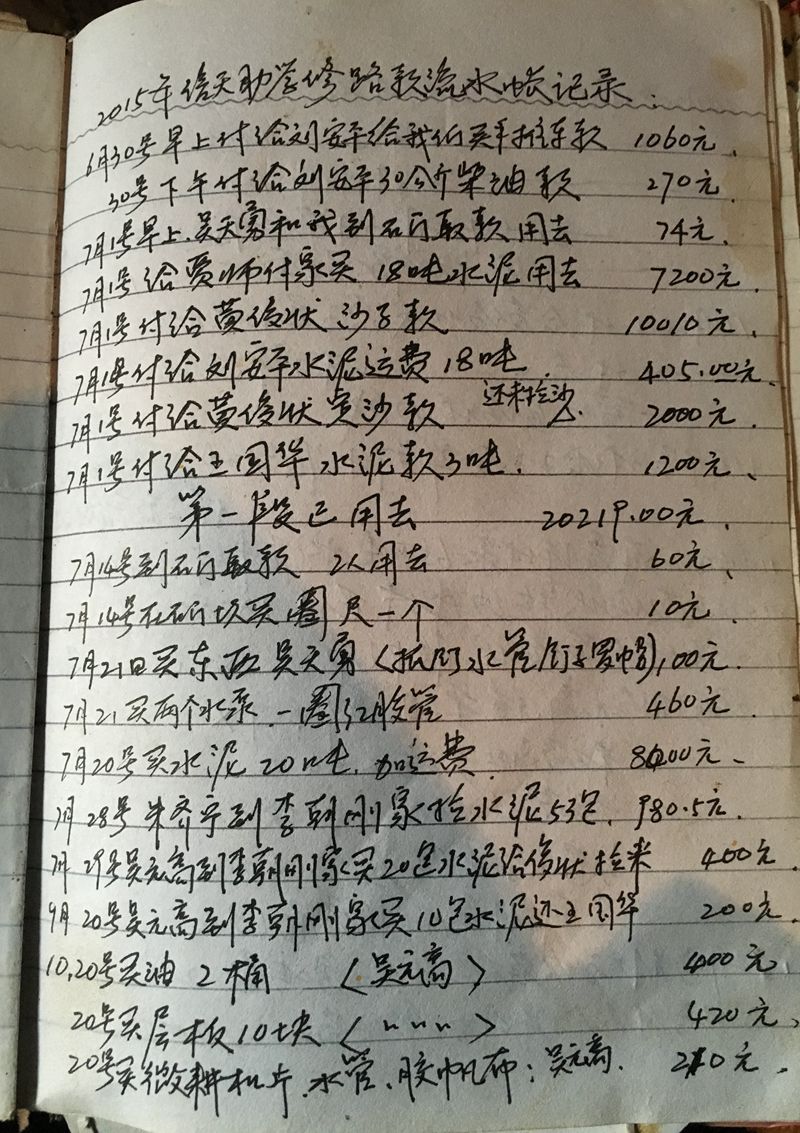 2015年倍天助学修路款流水帐记录.
6月30号早上付给刘安平给我们买手推车款 1060元、
30号下午付给刘安平30公斤柴油款 270元
7月1号早上.吴天勇和我到石门取款用去 74元.
7月1号给贾师付家买 18吨水泥用去 7200元.
7月1号付给黄俊状 沙子款 10010元
7月1号付给刘安平水泥运费18吨 405.00元
7月1号付给黄俊状定沙款 还未拉沙. 2000元
7月1号付给王国华水泥款3吨. 1200元、
第一段已用去 20219.00元、
7月14号到石门取款 2人用去 60元、
7月14号在石门坎买圈尺一个 10元、
7月21日买东西吴天勇(抓钉水管钉子罗帽),100元.
7月21买两个水泵.一圈红胶管 460元
7月20号买水泥20吨.加运费. 8400元、
7月28号朱齐宇到李朝刚家拉水泥53包. 980.5元.
7月29号吴元高到李朝刚家买20包水泥给俊状拉来 400元
9月20号吴元高到李朝刚家买10包水泥还王国华 200元.
10,20号买油2桶 (吴元高) 400元,
20号买层板10块 ( " " " ) 420元,
20号买微耕机片.水管、胶帆布:吴元高. 210元.